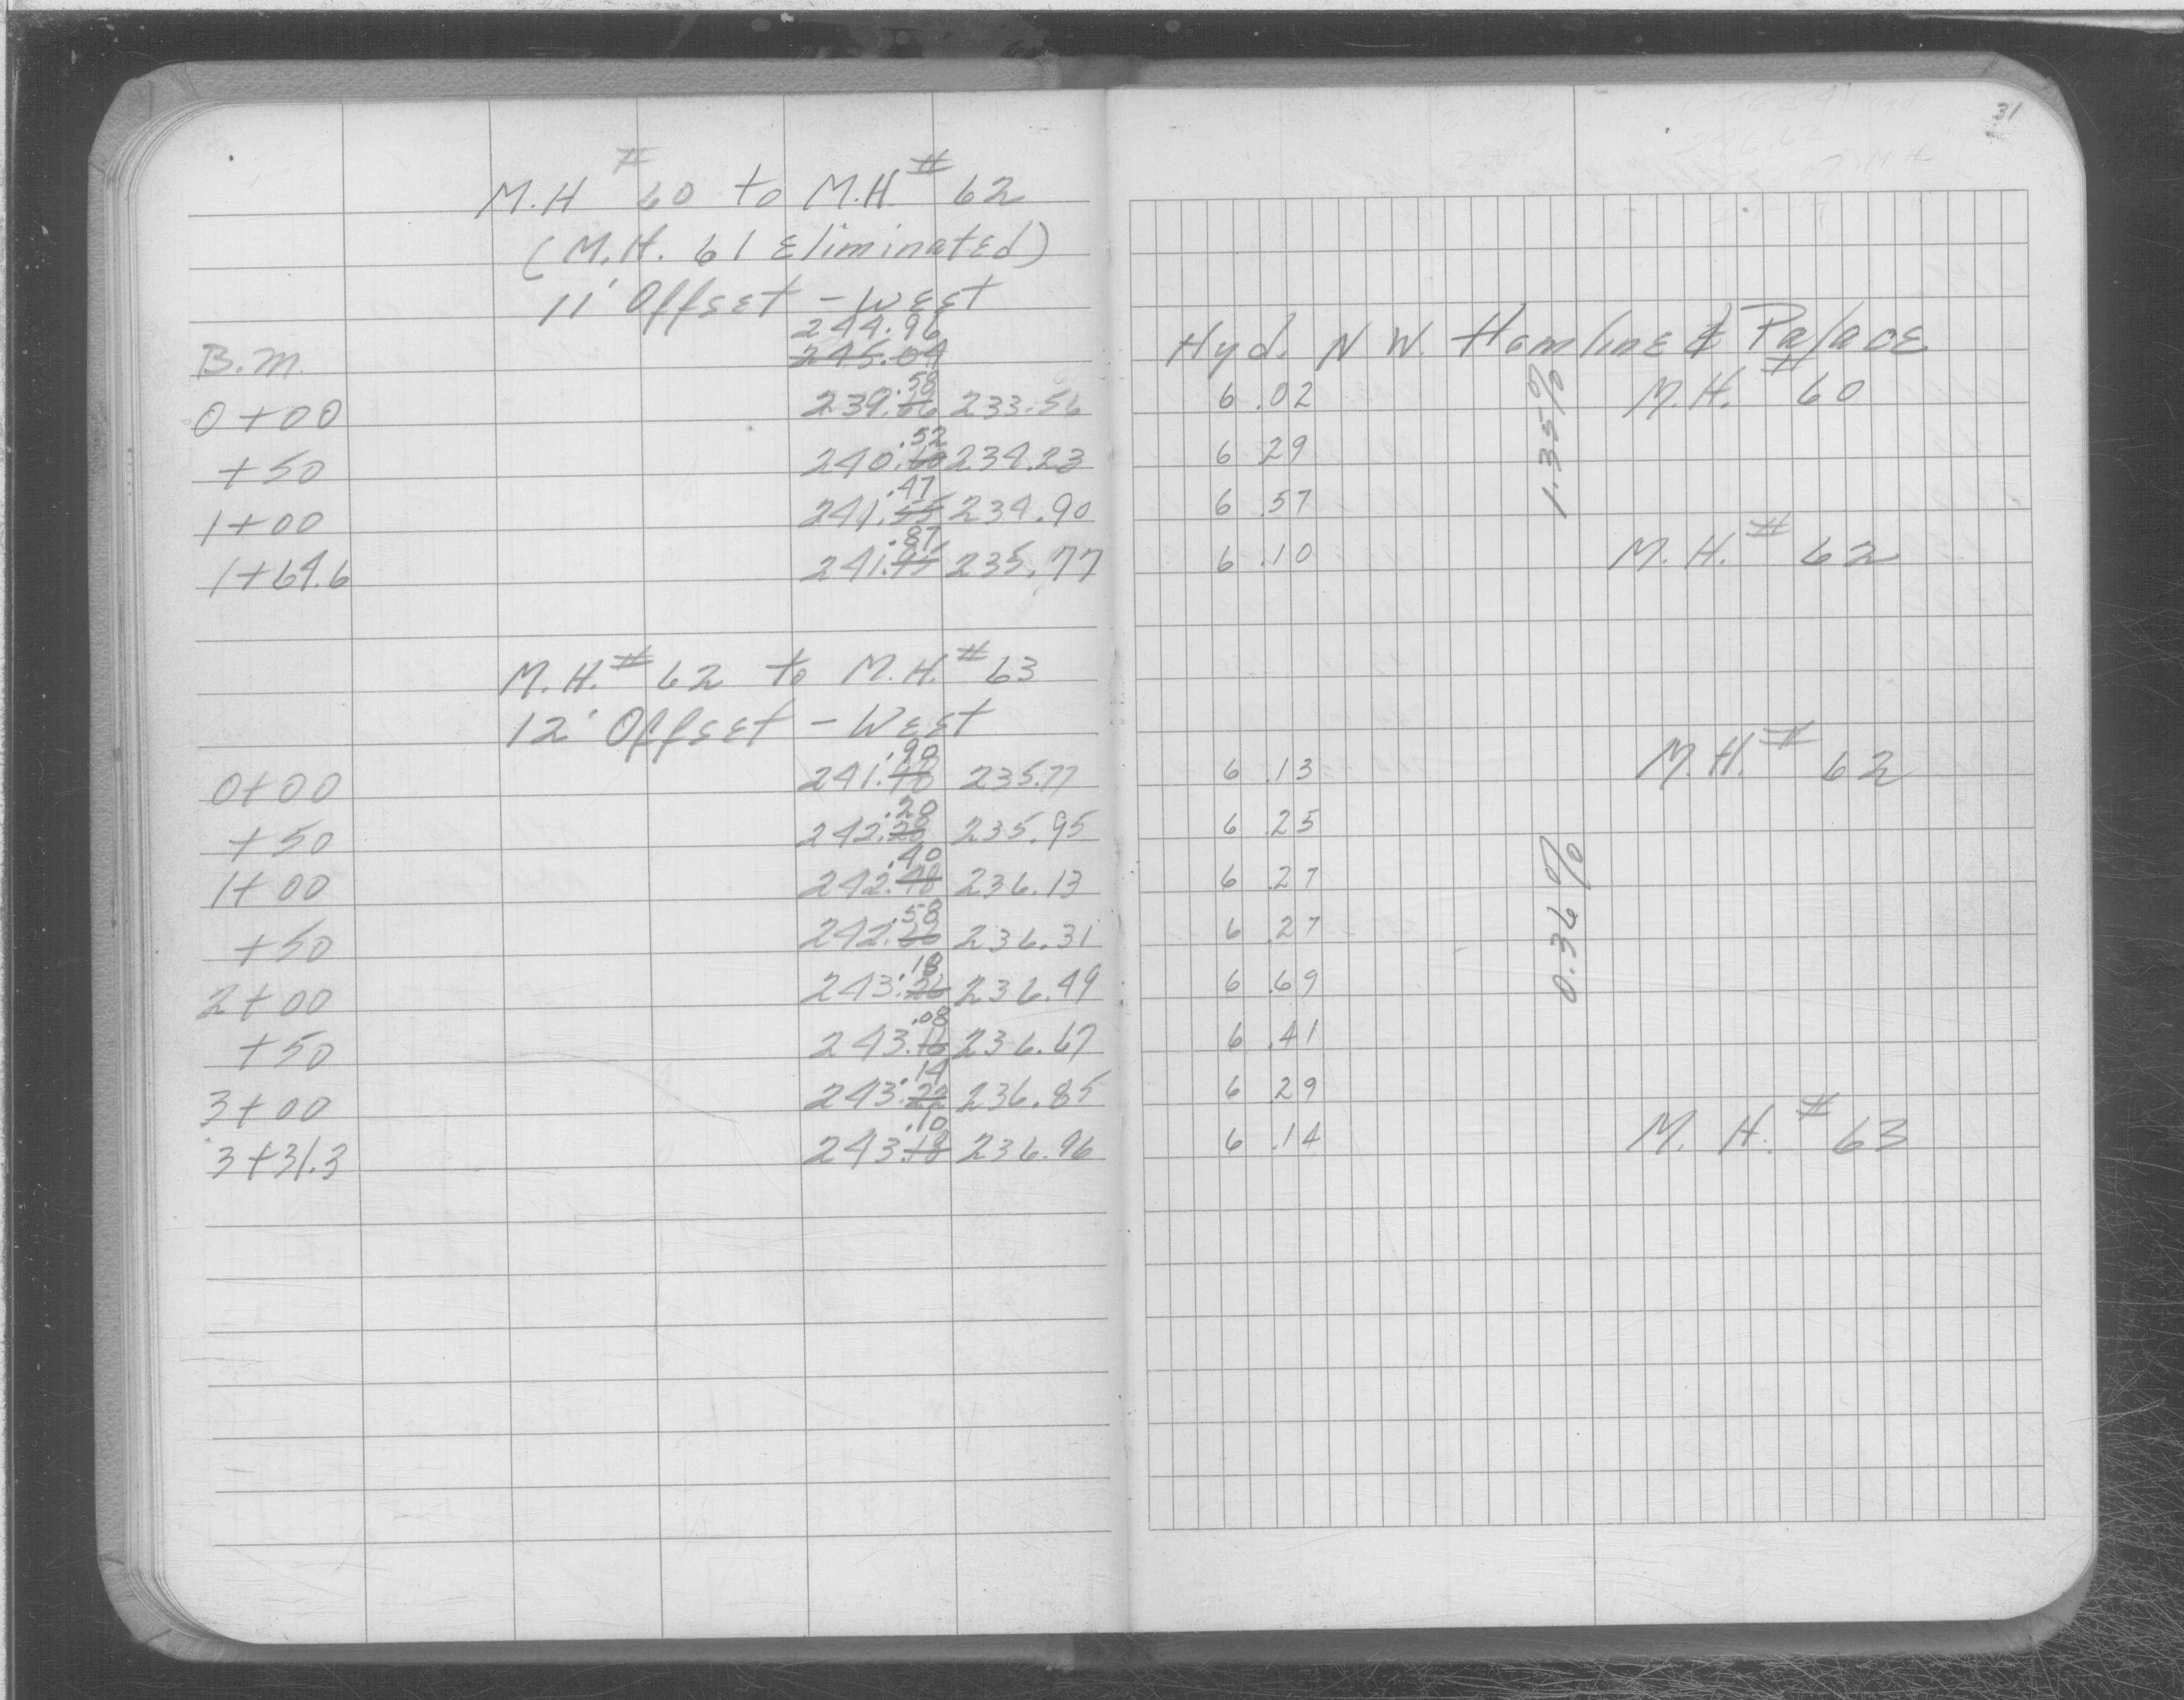 31
M.H # 60 to M.H. # 62
(M.H. 61 Eliminated)
11' Offset - West
244.96
B.M. 245.04 Hyd. N W. Hamline & Palace
.58
0+00 239.66 233.56 6 .02 M.H. # 60
.52
+50 240.60 234.23 6 .29
.47
1+00 241.55 234.90 6 .57
1.35%
.87
1+64.6 241.95 235.77 6 .10 M.H. # 62
M.H. # 62 to M.H. # 63
12' Offset - West
.90
0+00 241.98 235.77 6 .13 M.H. # 62
.20
+50 242.28 235.95 6 .25
.40
1+00 242.48 236.13 6 .27
.58
+50 242.66 236.31 6 .27
0.36%
.18
2+00 243.26 236.49 6 .69
.08
+50 243.16 236.67 6 .41
.14
3+00 243.22 236.85 6 .29
.10
3+31.3 243.18 236.96 6 .14 M. H. # 63